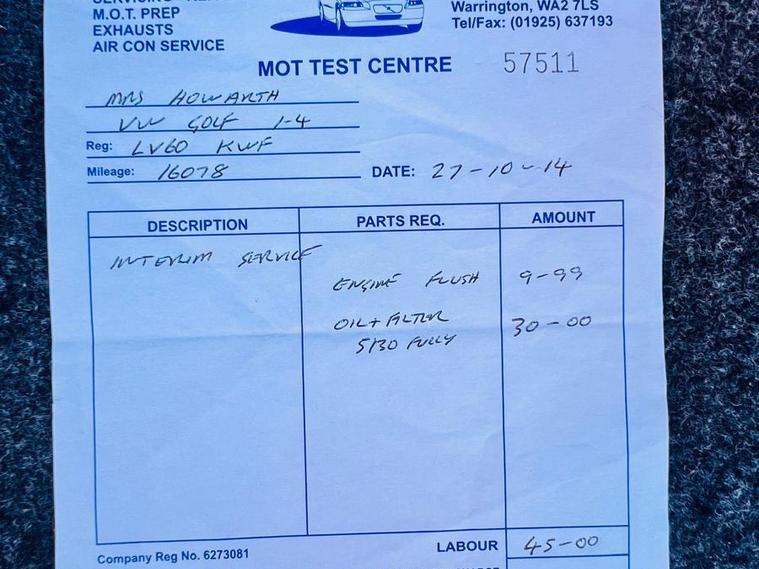 M.O.T. PREP
EXHAUSTS
AIR CON SERVICE
Warrington, WA2 7LS
Tel/Fax: (01925) 637193
MOT TEST CENTRE 57511
MRS HOWARTH
VW GOLF 1-4
Reg: LV60 KWF
Mileage: 16078 DATE: 27-10-14
DESCRIPTION PARTS REQ. AMOUNT
INTERIM SERVICE
ENGINE FLUSH 9-99
OIL + FILTER 30-00
5/30 FULLY
Company Reg No. 6273081 LABOUR 45-00